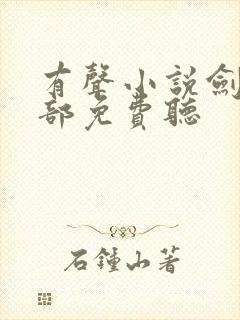 有聲小說劍
部免費聽
石鍾山著